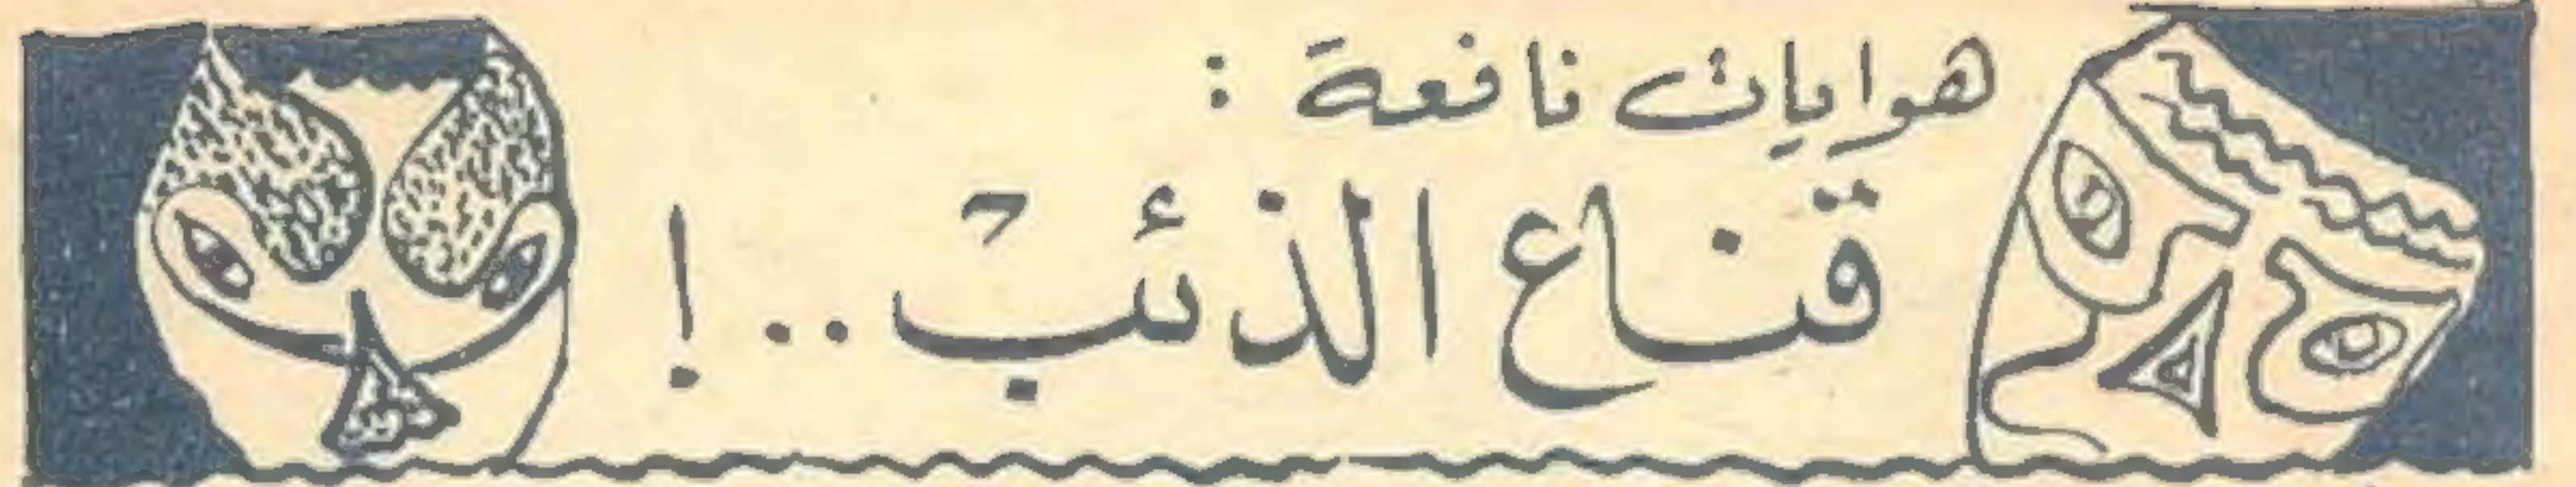 هوايات نافعة :
قناع الذئب ..!